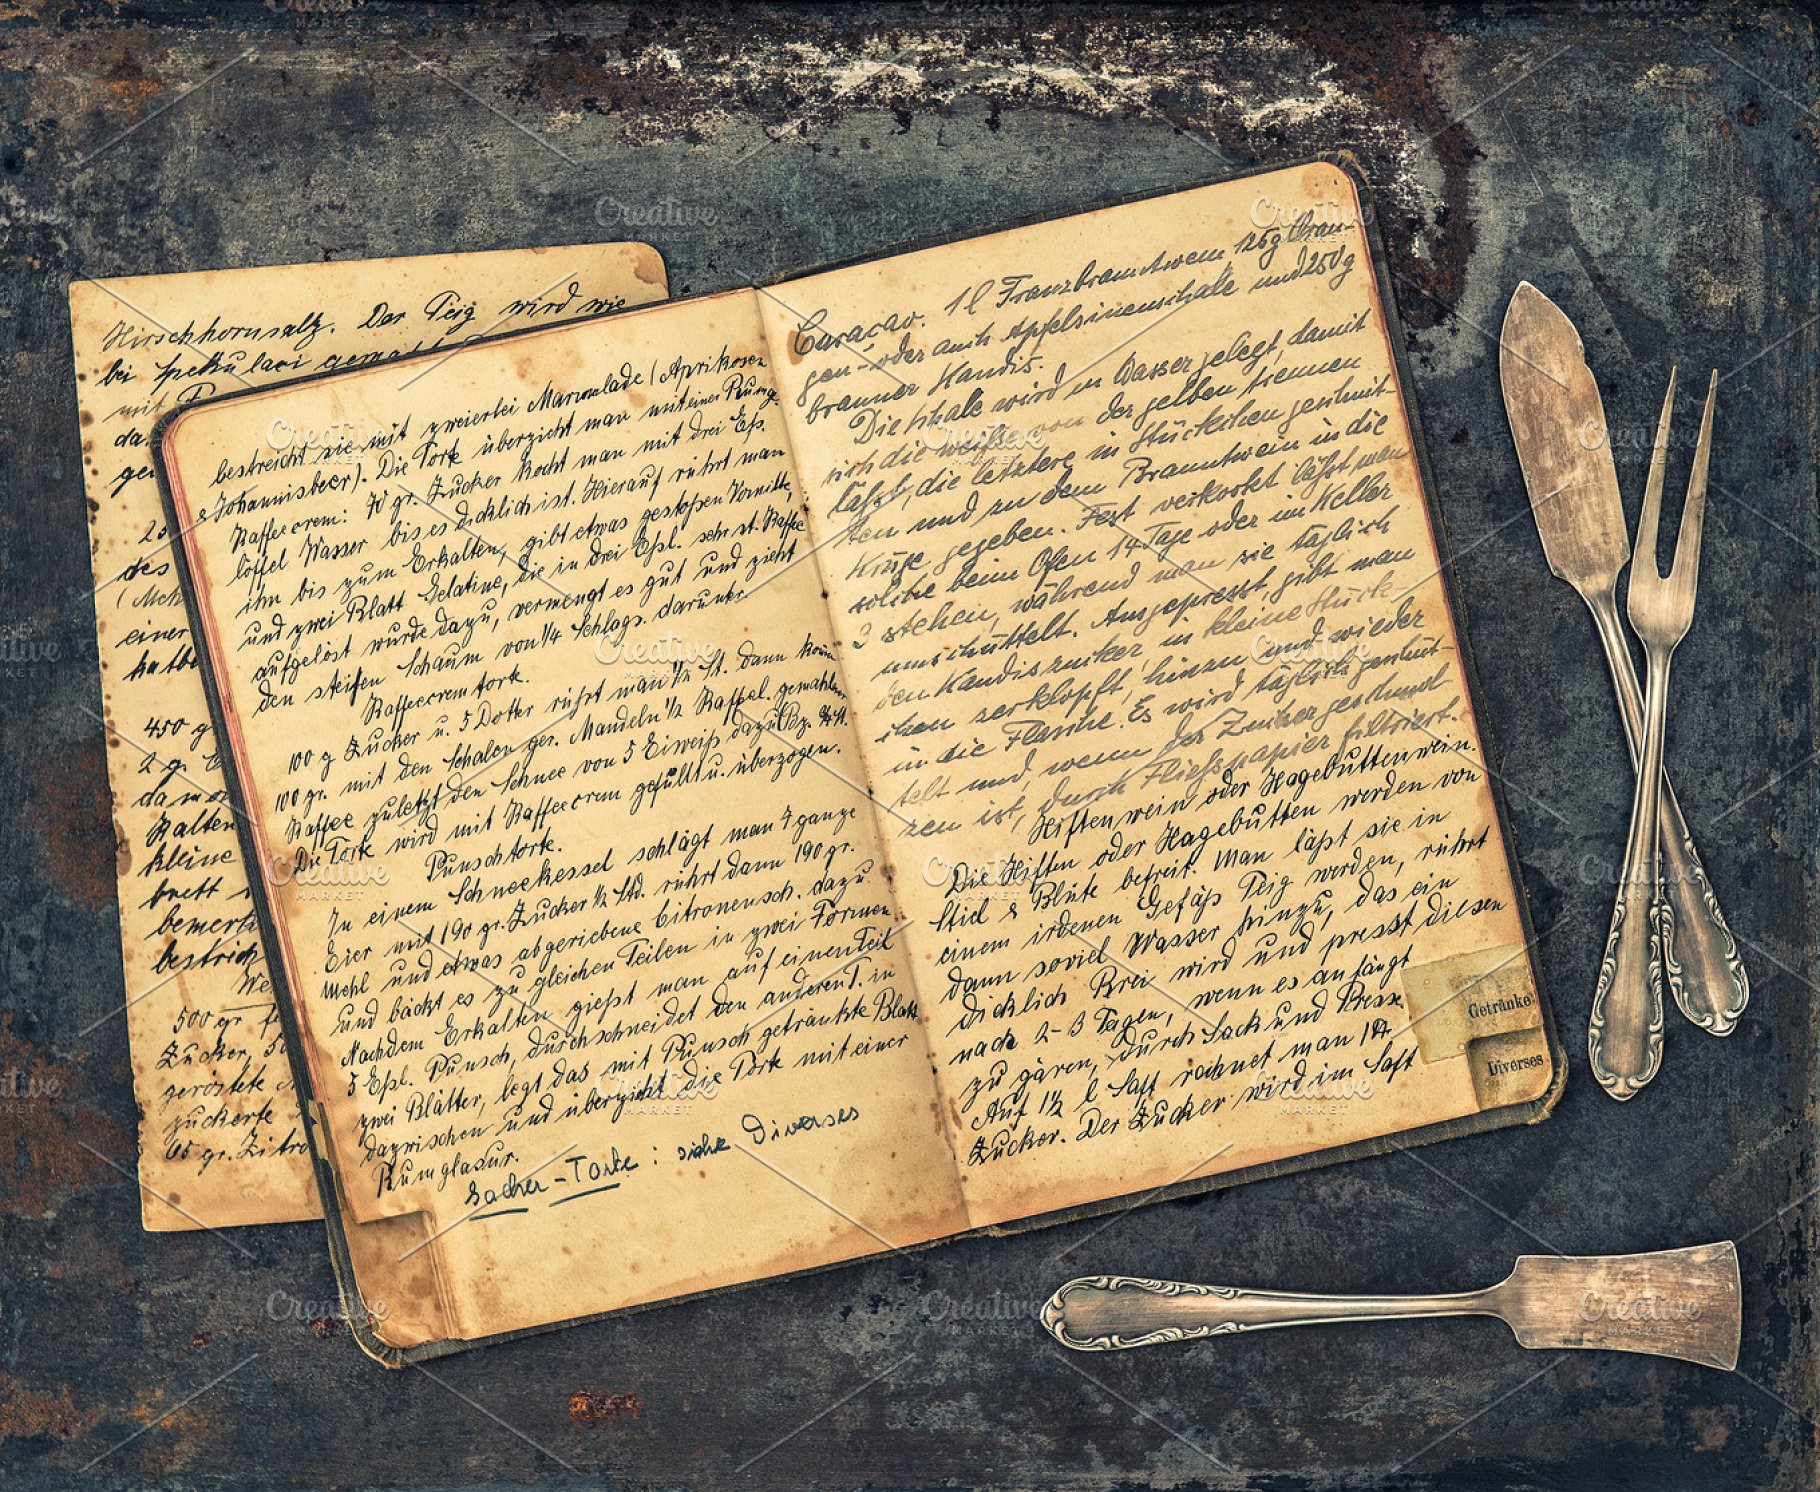 Hirschhornsalz. Der Teig wird wie
bei Spekulaci gemacht
mit
da
gen
25
des
einer
450 g
2 gr.
kalten
kleine
brett
bestrich
500 gr.
Zucker, 50
geröstete
zuckerte
65 gr. Zitro
bestreicht sie mit zweierlei Marmelade (Aprikosen
& Johannisbeer). Die Torte überzieht man mit einer Rumg.
Kaffeecrem: 70 gr. Zucker kocht man mit drei Eß.
löffel Wasser bis es dicklich ist. Hierauf rührt man
ihn bis zum Erkalten, gibt etwas gestoßen Vanille,
und zwei Blatt Gelatine, die in drei Eßl. sehr st. Kaffee
aufgelöst wurde dazu, vermengt es gut und zieht
den steifen Schaum von 1/4 Schlags. darunter
Kaffeecremtork.
100 g Zucker u. 5 Dotter rührt man 1/2 St. dann
100 gr. mit den Schalen ger. Mandeln 1/2 Kaffel. gemahlen
Kaffee zuletzt den Schnee von 5 Eiweiß dazu
Die Torte wird mit Kaffeecrem gefüllt u. überzogen.
Punschtorte.
In einem Schneekessel schlägt man 4 ganze
Eier mit 190 gr. Zucker 1/2 Std. rührt dann 190 gr.
Mehl und etwas abgeriebene Citronensch. dazu
und bäckt es zu gleichen Teilen in zwei Formen.
Nachdem Erkalten gießt man auf einen Teil
5 Eßl. Punsch, durchschneidet den anderen T. in
zwei Blätter, legt das mit Punsch getränkte Blatt
dazwischen und überzieht die Torte mit einer
Rumglasur.
Sacher-Torte: siehe Diverses
Curaçao. 1 l Franzbranntwein, 125 g Oran-
gen- oder auch Apfelsinenschale und 250 g
brauner Kandis.
Die Schale wird in Wasser gelegt, damit
sich die weiße von der gelben trennen
läßt, die letztere in Stückchen geschnit-
ten und zu dem Branntwein in die
Kruge gegeben. Fest verkorkt läßt man
solche beim Ofen 14 Tage oder im Keller
3 stehen, während man sie täglich
umschüttelt. Ausgepresst, gibt man
den Kandiszucker, in kleine Stück,
chen zerklopft, hinzu und wieder
in die Flasche. Es wird täglich geschüt-
telt und, wenn der Zucker geschmol-
zen ist, durch Fließpapier filtriert.
Hiftenwein oder Hagebuttenwein.
Die Hiften oder Hagebutten werden von
Stiel & Blüte befreit. Man läßt sie in
einem irdenen Gefäß Teig werden, rührt
dann soviel Wasser hinzu, das ein
dicklich Brei wird und presst diesen
nach 2-3 Tagen, wenn es anfängt
zu gären, durch Sack und Presse
Auf 1 1/2 l Saft rechnet man 1 ℔
Zucker. Der Zucker wird im Saft
Getränke
Diverses